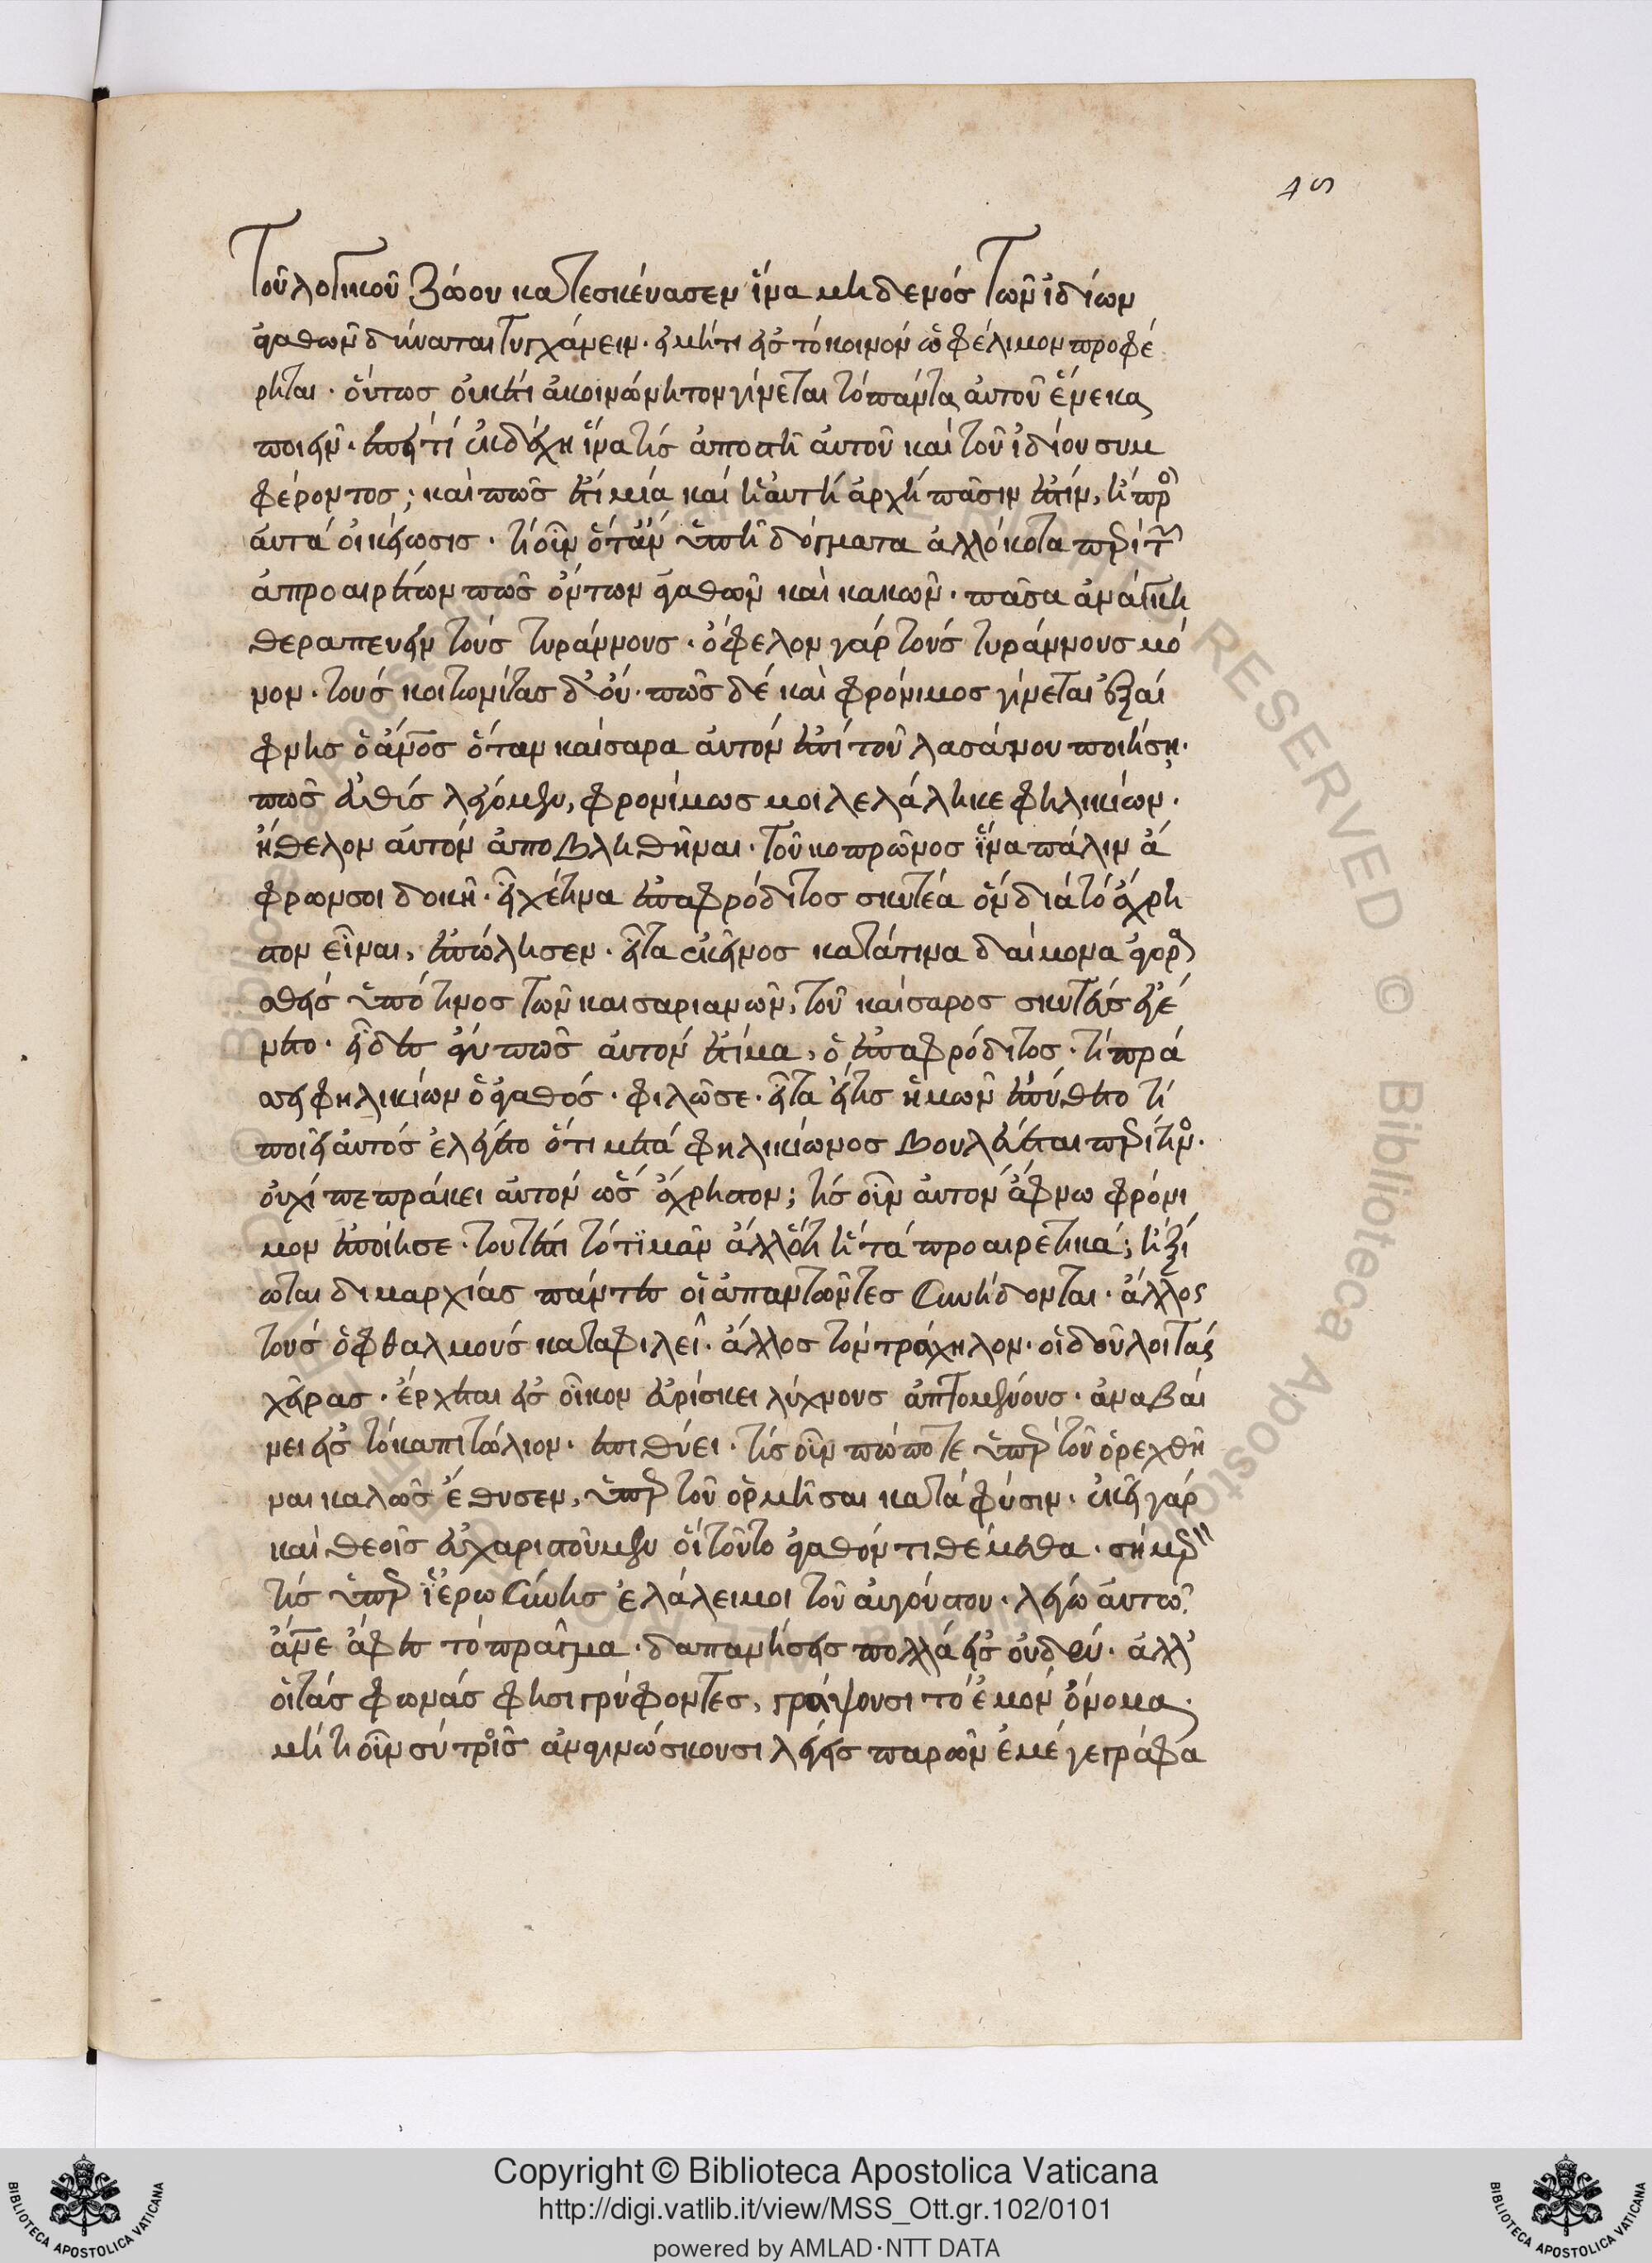 45
τοῦ λογικοῦ ζώου κατεσκέυασεν ἵνα μηδενός τῶν ἰδίων
ἀγαθῶν δύναται τυγχάνειν. εἰ μή τι εἰς τό κοινόν ὠφέλιμον προσφέ
ρηται. οὕτως οὐκέτι ἀκοινώνητον γίνεται τό πάντα αὐτοῦ ἕνεκα
ποιεῖν. ἐπεί τί ἐκδέχῃ ἵνα τίς ἀποστῆ αὐτοῦ καί τοῦ ἰδίου συμ
φέροντος; καὶ πῶς ἔτι μία καί ἡ αὐτή ἀρχή πᾶσιν ἐστίν, ἡ πρὸς
αὐτά οἰκείωσις. τί οὖν ὅταν ὑπῆ δόγματα ἀλλόκοτα περί τῶν
ἀπροαιρέτων πῶς ὄντων ἀγαθῶν καὶ κακῶν. πᾶσα ἀνάγκη
θεραπεύειν τούς τυράννους. ὄφελον γάρ τούς τυράννους μό
νον. τούς κοιτωνίτας δ' οὔ. πῶς δέ καὶ φρόνιμος γίνεται ἐξαί
φνης ὁ ἄνος ὅταν καίσαρα αὐτόν ἐπί τοῦ λασάνου ποιήσῃ.
πῶς εὐθύς λέγομεν, φρονίμως μοι λελάληκε φηλικίων.
ἤθελον αὐτόν ἀποβληθῆναι. τοῦ κοπρῶνος ἵνα πάλιν ἄ
φρων σοι δοκῆ. εἶχέ τινα ἐπαφρόδιτος σκυτέα ὅν διά τό ἄχρη
στον εἶναι, ἐπώλησεν. εἶτα ἐκεῖνος κατά τινα δαίμονα ἀγορα
σθείς ὑπό τινος τῶν καισαριανῶν, τοῦ καίσαρος σκυτεύς ἐγέ
νετο. εἶδες ἄν πῶς αὐτόν ἐτίμα, ὁ ἐπαφρόδιτος. τί πρά
σει φηλικίων ὁ ἀγαθός. φιλῶ σε. εἶτα εἴ τις ἡμῶν ἐπύθετο τί
ποιεῖ αὐτός ἐλέγετο ὅτι μετά φηλικίωνος βουλεύεται περί τινος.
οὐχί πεπράκει αὐτόν ὡς ἄχρηστον; τίς οὖν αὐτόν ἄφνω φρόνι
μον ἐποίησε. τουτέστι τό τιμᾶν ἄλλό τι ἤ τά προαιρετικά; ἠξί
ωται δημαρχίας πάντες οἱ ἀπαντῶντες συνήδονται. ἄλλος
τούς ὀφθαλμούς καταφιλεῖ. ἄλλος τόν τράχηλον. οἱ δοῦλοι τάς
χεῖρας. ἔρχεται εἰς οἶκον εὑρίσκει λύχνους ἁπτομένους. ἀναβαί
νει εἰς τό καπιτώλιον. ἐπιθύει. τίς οὖν πώποτε ὑπέρ τοῦ ὀρεχθῆ
ναι καλῶς ἔθυσεν, ὑπέρ τοῦ ὁρμῆσαι κατά φύσιν. ἐκεῖ γάρ
καὶ θεοῖς εὐχαριστοῦμεν οὗ τοῦτο ἀγαθόν τιθέμεθα. σήμερόν
τίς ὑπέρ ἱερωσύνης ἐλάλει μοι τοῦ αὐγούστου. λέγω αὐτῶ.
ἄνε ἄφες τό πρᾶγμα. δαπανήσεις πολλά εἰς οὐδέν. ἀλλ'
οἱ τάς φωνάς φησι γρύφοντες, γράψουσι τό ἐμόν ὄνομα.
μή τι οὖν σύ τοῖς ἀναγινώσκουσι λέγεις παρών ἐμέ γεγράφα